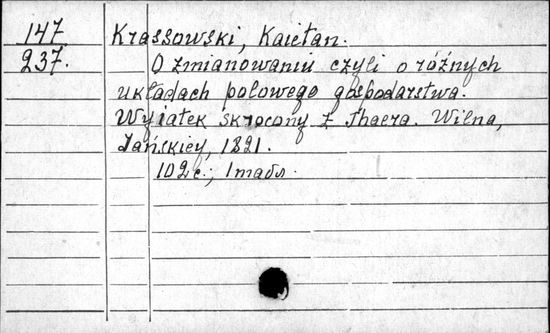 147 Krassowski, Kaietan.
237. O zmianowaniu czyli o różnych
układach polowego gospodarstwa.
Wyiątek skrócony z Thaera. Wilna,
Zańskiey, 1821.
102 c.; 1 mads.